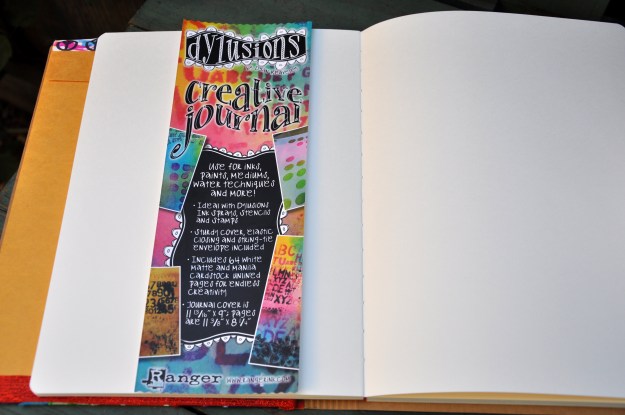 dylusions
creative
journal
Use for inks,
paints, mediums,
water techniques
and more!
• Ideal with Dylusions
Ink Sprays, stencils
and stamps
• Sturdy cover, elastic
closing and string-tie
envelope included
• Includes 64 white
matte and manila
cardstock unlined
pages for endless
creativity
• Journal cover is
pages
Ranger